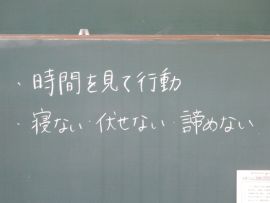 ・時間を見て行動
・寝ない・伏せない・諦めない